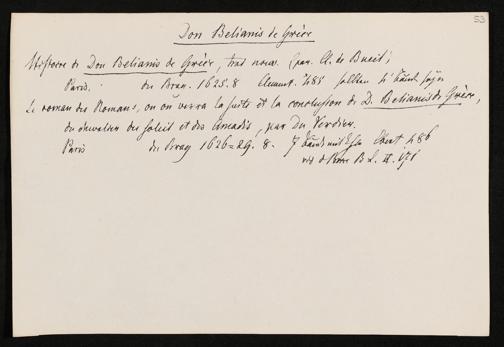 53
Don Belianis de Grèce
Histoire de Don Belianis de Grèce, trad nouv. (par. Cl. de Bueil;
Paris. du Bray. 1625. 8 485 sollten 4
Le roman des Romans, ou on verra la suite et la conclusion de D. Belianis de Grèce,
du chevalier du Soleil et des Amadis, par Du Verdier.
Paris du Bray 1626=29. 8. 7 Bände mit Ebert 486
B. L. II. 171